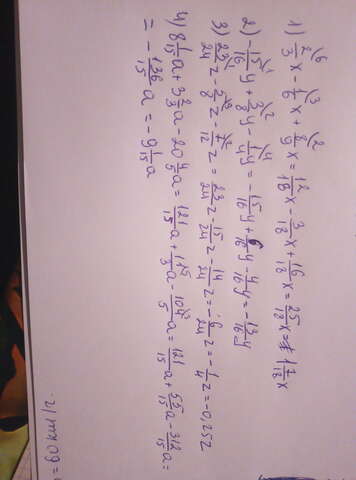 1) 2/3 x - 1/6 x + 8/9 x = 12/18 x - 3/18 x + 16/18 x = 25/18 x = 1 7/18 x
2) -15/16 y + 3/8 y - 1/4 y = -15/16 y + 6/16 y - 4/16 y = -13/16 y
3) 23/24 z - 5/8 z - 7/12 z = 23/24 z - 15/24 z - 14/24 z = -6/24 z = -1/4 z = -0,25z
4) 8 1/15 a + 3 2/3 a - 20 4/5 a = 121/15 a + 11/3 a - 104/5 a = 121/15 a + 55/15 a - 312/15 a =
= -136/15 a = -9 1/15 a
=60 км/г.